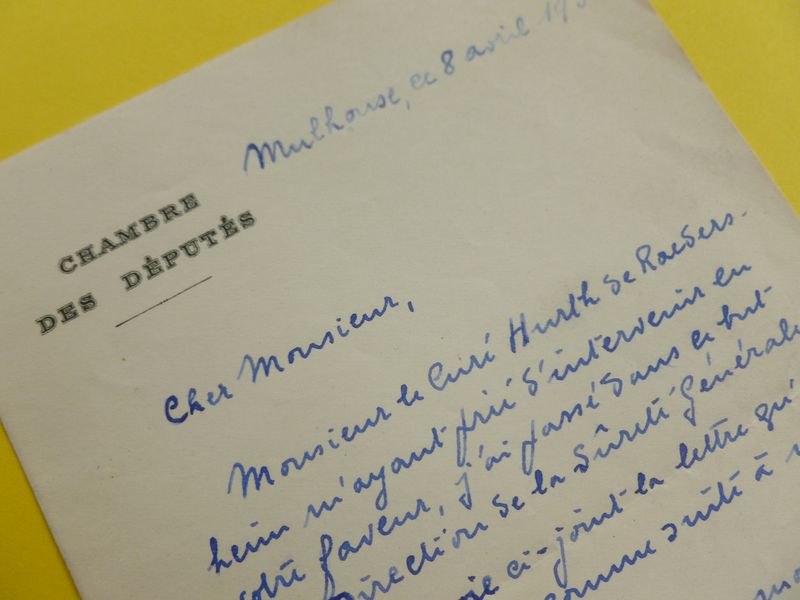 Mulhouse, ce 8 avril 19
CHAMBRE
DES DÉPUTÉS
Cher Monsieur,
Monsieur le Curé Hurth de Roeders-
heim m'ayant prié d'intervenir en
votre faveur, j'ai passé dans ce but
Direction de la Sûreté Générale
ci-joint la lettre qu'
comme suite à